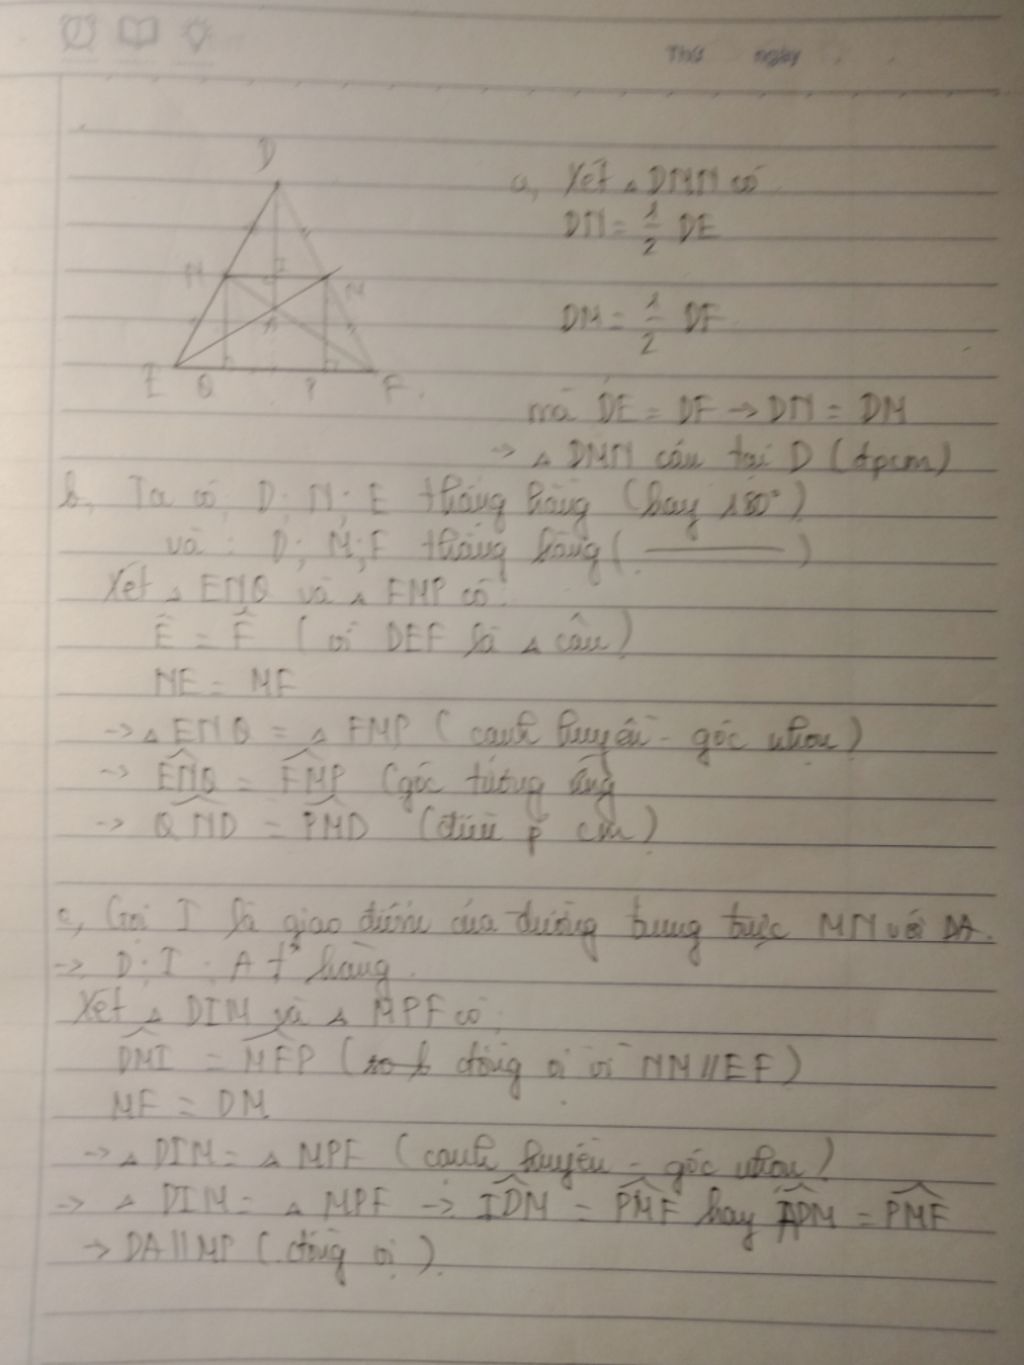 Thứ ngày
D
N I M
A
E Q P F
a, Xét △ DMN có
DN = 1/2 DE
DM = 1/2 DF
mà DE = DF → DN = DM
→ △ DMN cân tại D (đpcm)
b, Ta có D; N; E thẳng hàng (hay 180°)
và : D; M; F thẳng hàng ( ——— )
Xét △ ENQ và △ FMP có:
Ê = F̂ (vì DEF là △ cân)
NE = MF
→ △ ENQ = △ FMP (cạnh huyền - góc nhọn)
→ ENQ = FMP (góc tương ứng
→ QND = PMD (điều p cm)
c, Gọi I là giao điểm của đường trung trực MN với DA.
→ D; I; A tˀ hàng.
Xét △ DIM và △ MPF có:
DMI = MFP (đồng vị vì NM // EF)
MF = DM
→ △ DIM = △ MPF (cạnh huyền - góc nhọn)
→ △ DIM = △ MPF → IDM = PMF hay ADM = PMF
→ DA // MP (đồng vị).